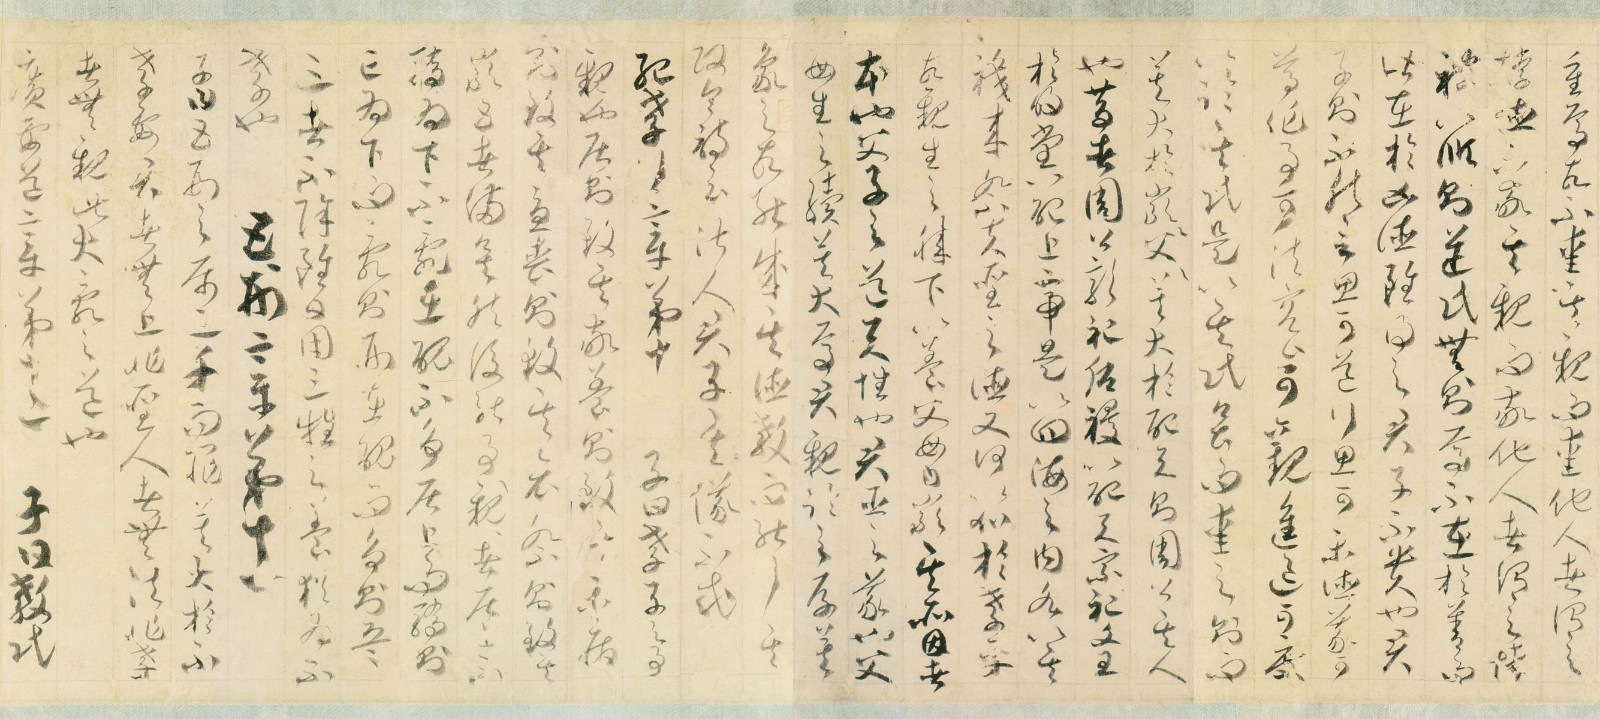 重焉故不愛其親而愛他人者謂之
悖德不敬其親而敬他人者謂之悖
禮以順則逆民無則焉不在於善而
皆在於凶德雖得之君子不貴也君
子則不然言思可道行思可樂德義可
尊作事可法容止可觀進退可度
以臨其民是以其民畏而愛之則而
莫大於嚴父嚴父莫大於配天則周公其人
也昔者周公郊祀后稷以配天宗祀文王
於明堂以配上帝是以四海之內各以其
職來祭夫聖人之德又何以加於孝乎
故親生之膝下以養父母日嚴其所因者
本也父子之道天性也君臣之義父
母生之續莫大焉君親臨之厚莫
象之故能成其德教而能行其
政令詩云淑人君子其儀不忒
紀孝行章第十 子曰孝子之事
親也居則致其敬養則致其樂病
則致其憂喪則致其哀祭則致其
嚴五者備矣然後能事親事親者居上不
驕為下不亂在醜不爭居上而驕則
亡為下而亂則刑在醜而爭則兵
三者不除雖日用三牲之養猶為不
孝也 五刑章第十一
子曰五刑之屬三千而罪莫大於不
孝要君者無上非聖人者無法非孝
者無親此大亂之道也
廣要道章第十二 子曰教民